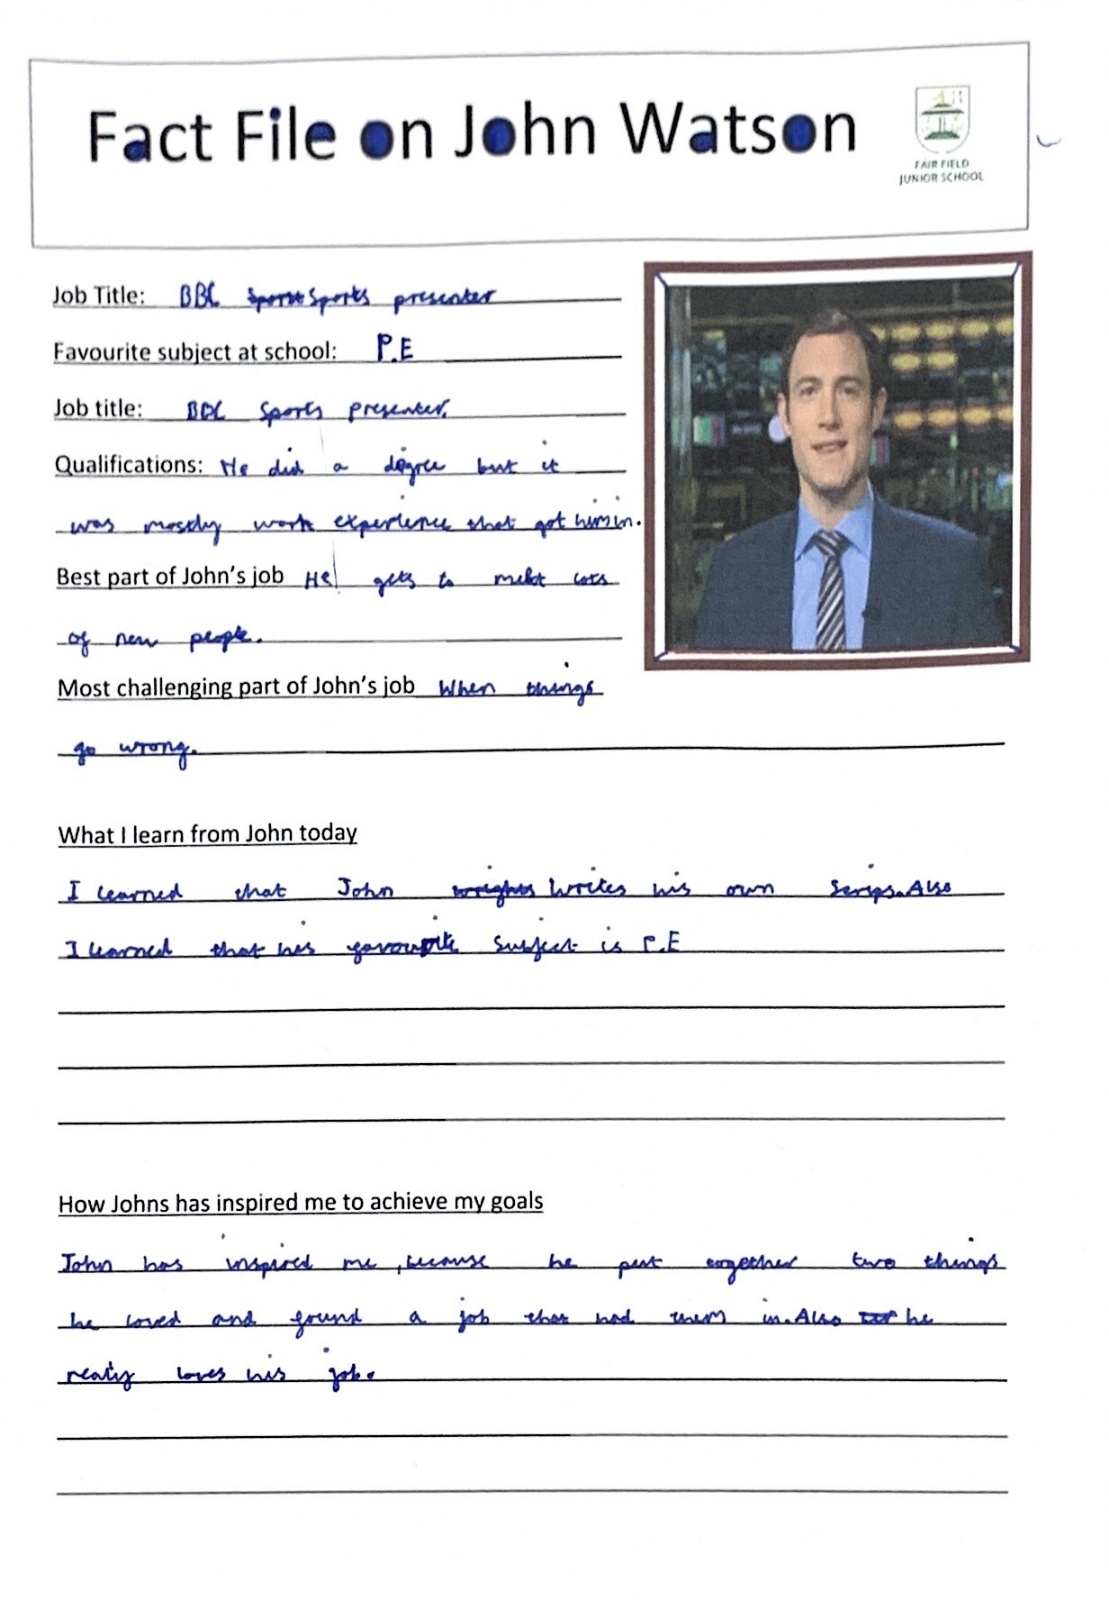 Fact File on John Watson
FAIRFIELD
JUNIOR SCHOOL
Job Title: BBC Sports presenter
Favourite subject at school: P.E
Job title: BBC Sports presenter.
Qualifications: He did a degree but it
was mostly work experience that got him in.
Best part of John's job He gets to meet lots
of new people.
Most challenging part of John's job When things
go wrong.
What I learn from John today
I learned that John wrights writes his own scrips. Also
I learned that his favourite subject is P.E
How Johns has inspired me to achieve my goals
John has inspired me, because he put together two things
he loved and found a job that had them in. Also he
really loves his job.